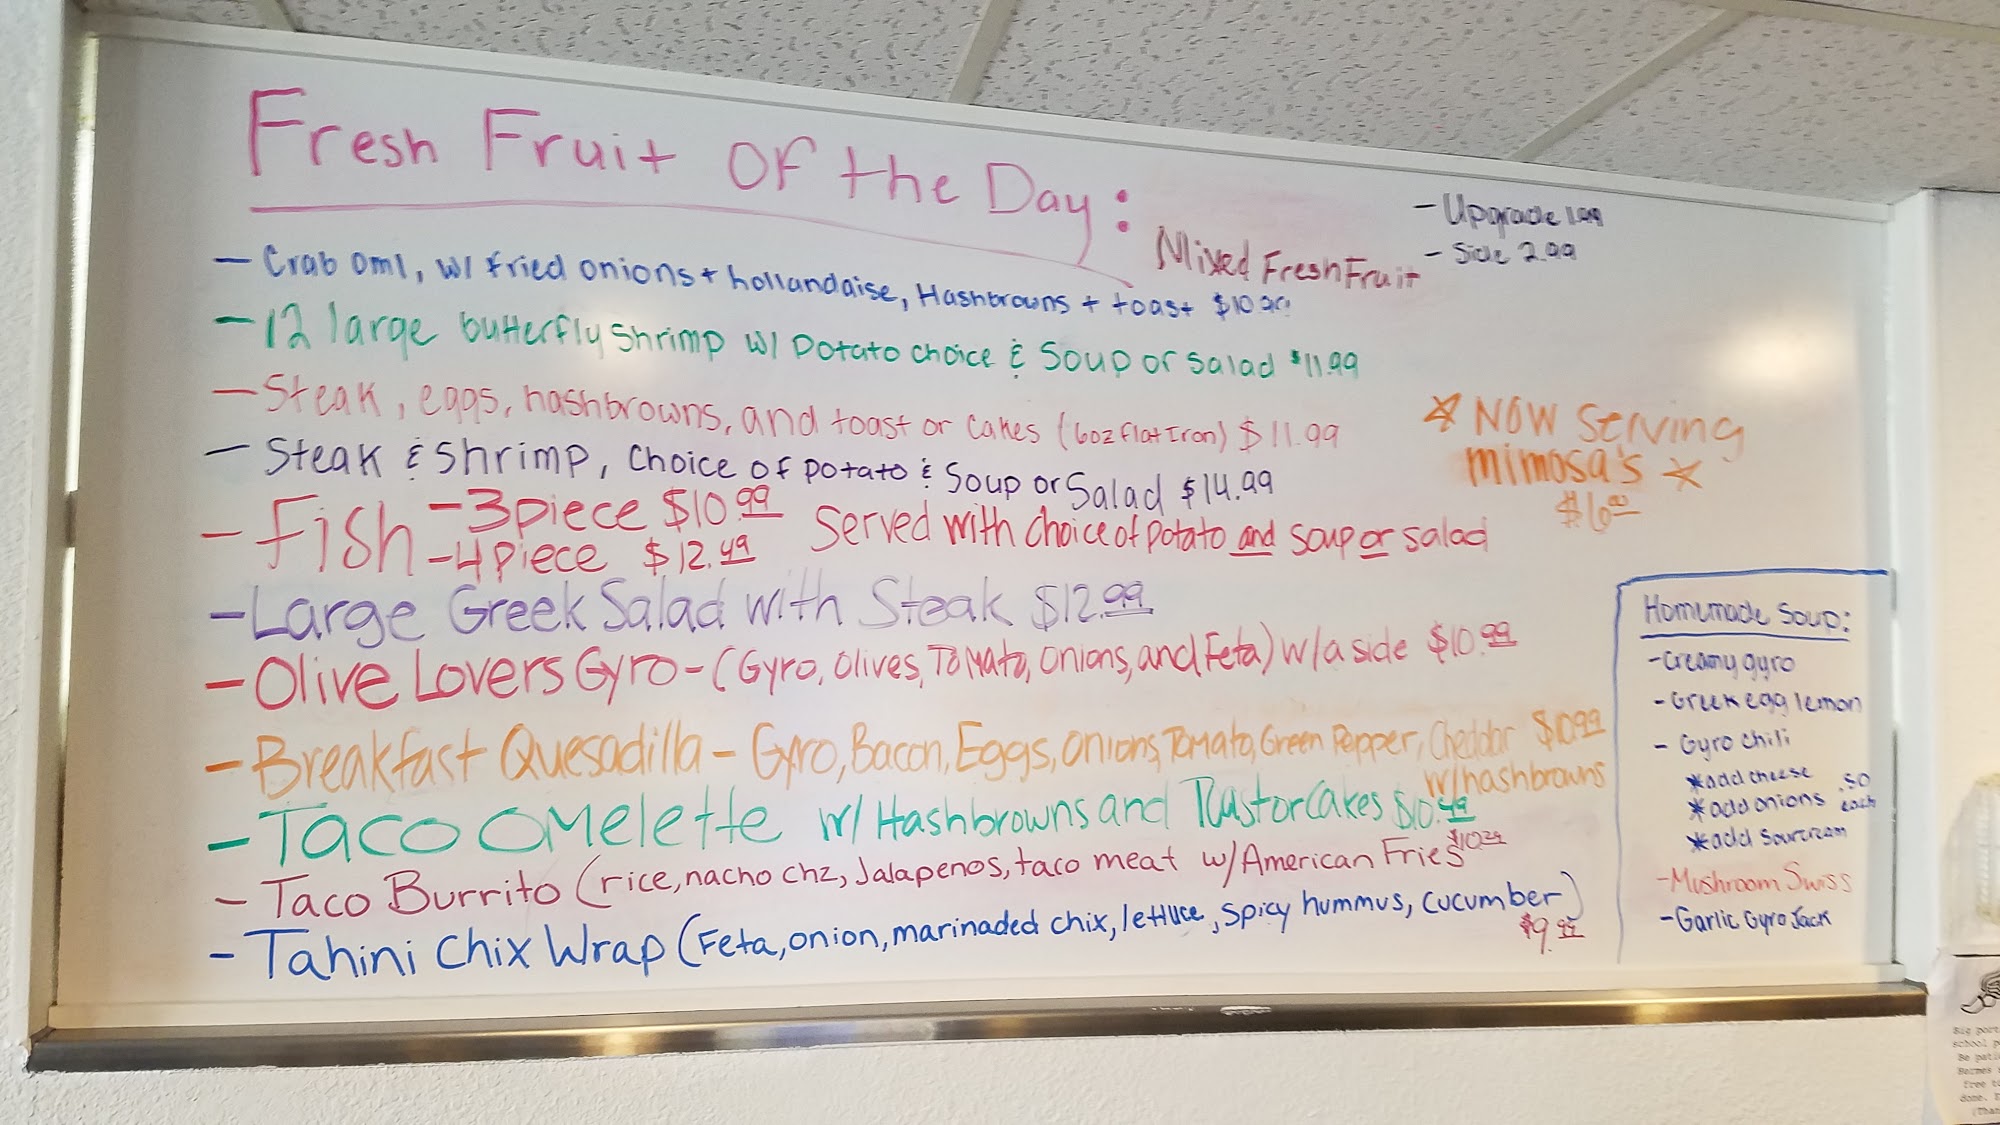 Fresh Fruit Of the Day:
Mixed Fresh Fruit
- Upgrade 1.99
- Side 2.99
- Crab Oml, w/ fried onions + hollandaise, Hashbrowns + toast
- 12 large butterfly shrimp w/ Potato choice & Soup or Salad $11.99
- Steak, eggs, hashbrowns, and toast or cakes (6oz flat Iron) $11.99
- Steak & Shrimp, choice of potato & Soup or Salad $14.99
- Fish - 3 piece $10.99
- 4 piece $12.49
Served with choice of potato and soup or salad
- Large Greek Salad with Steak $12.99
- Olive Lovers Gyro - (Gyro, Olives, Tomato, Onions, and Feta) w/a side $10.99
- Breakfast Quesadilla - Gyro, Bacon, Eggs, Onions, Tomato, Green Pepper, Cheddar $10.99
w/hashbrowns
- Taco Omelette w/ Hashbrowns and Tstor Cakes
- Taco Burrito (rice, nacho chz, Jalapenos, taco meat w/ American Fries
- Tahini Chix Wrap (Feta, onion, marinaded chix, lettuce, spicy hummus, cucumber)
☆ NOW Serving
mimosa's ☆
$6.00
Homemade Soup:
- Creamy gyro
- Greek egg lemon
- Gyro chili
*add cheese .50
*add onions each
*add sourcream
- Mushroom Swiss
- Garlic Gyro Jack
Big port
school p
Be pati
free to
done.
(Than